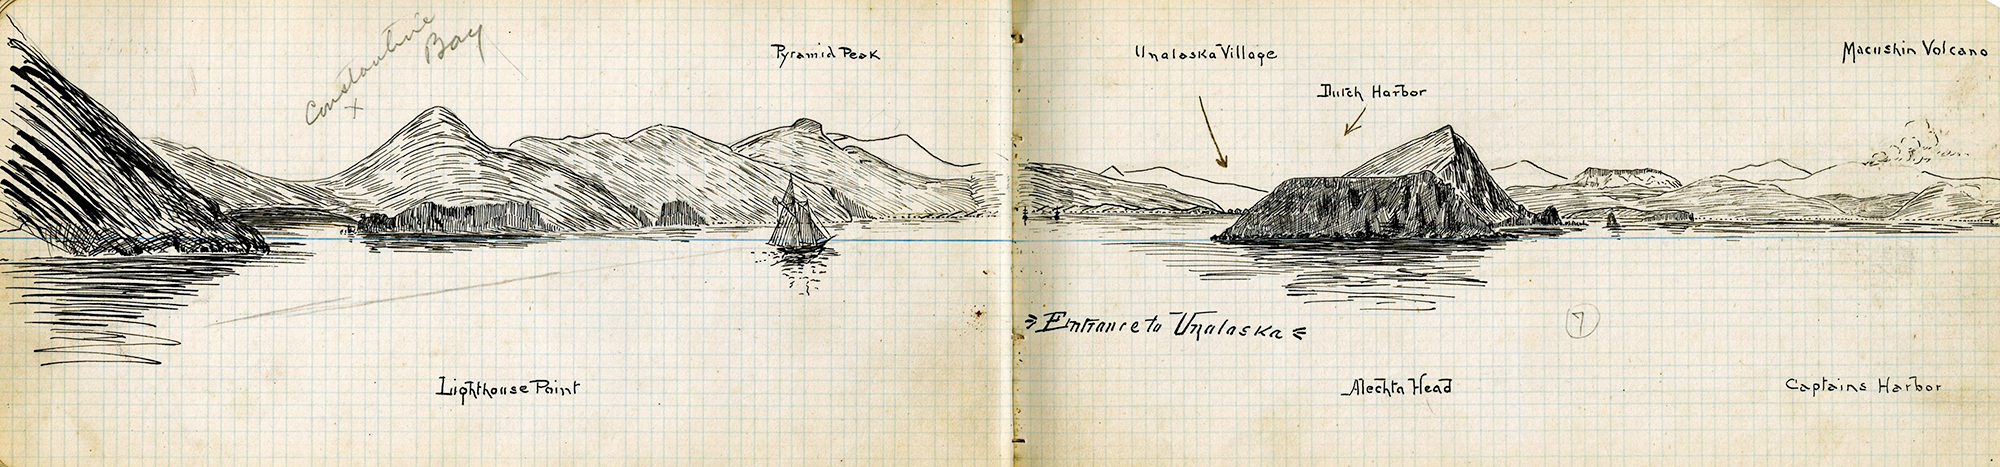 Constantine
Bay
x
Pyramid Peak
Unalaska Village
Dutch Harbor
Macushin Volcano
Entrance to Unalaska
7
Lighthouse Point
Alechta Head
Captains Harbor